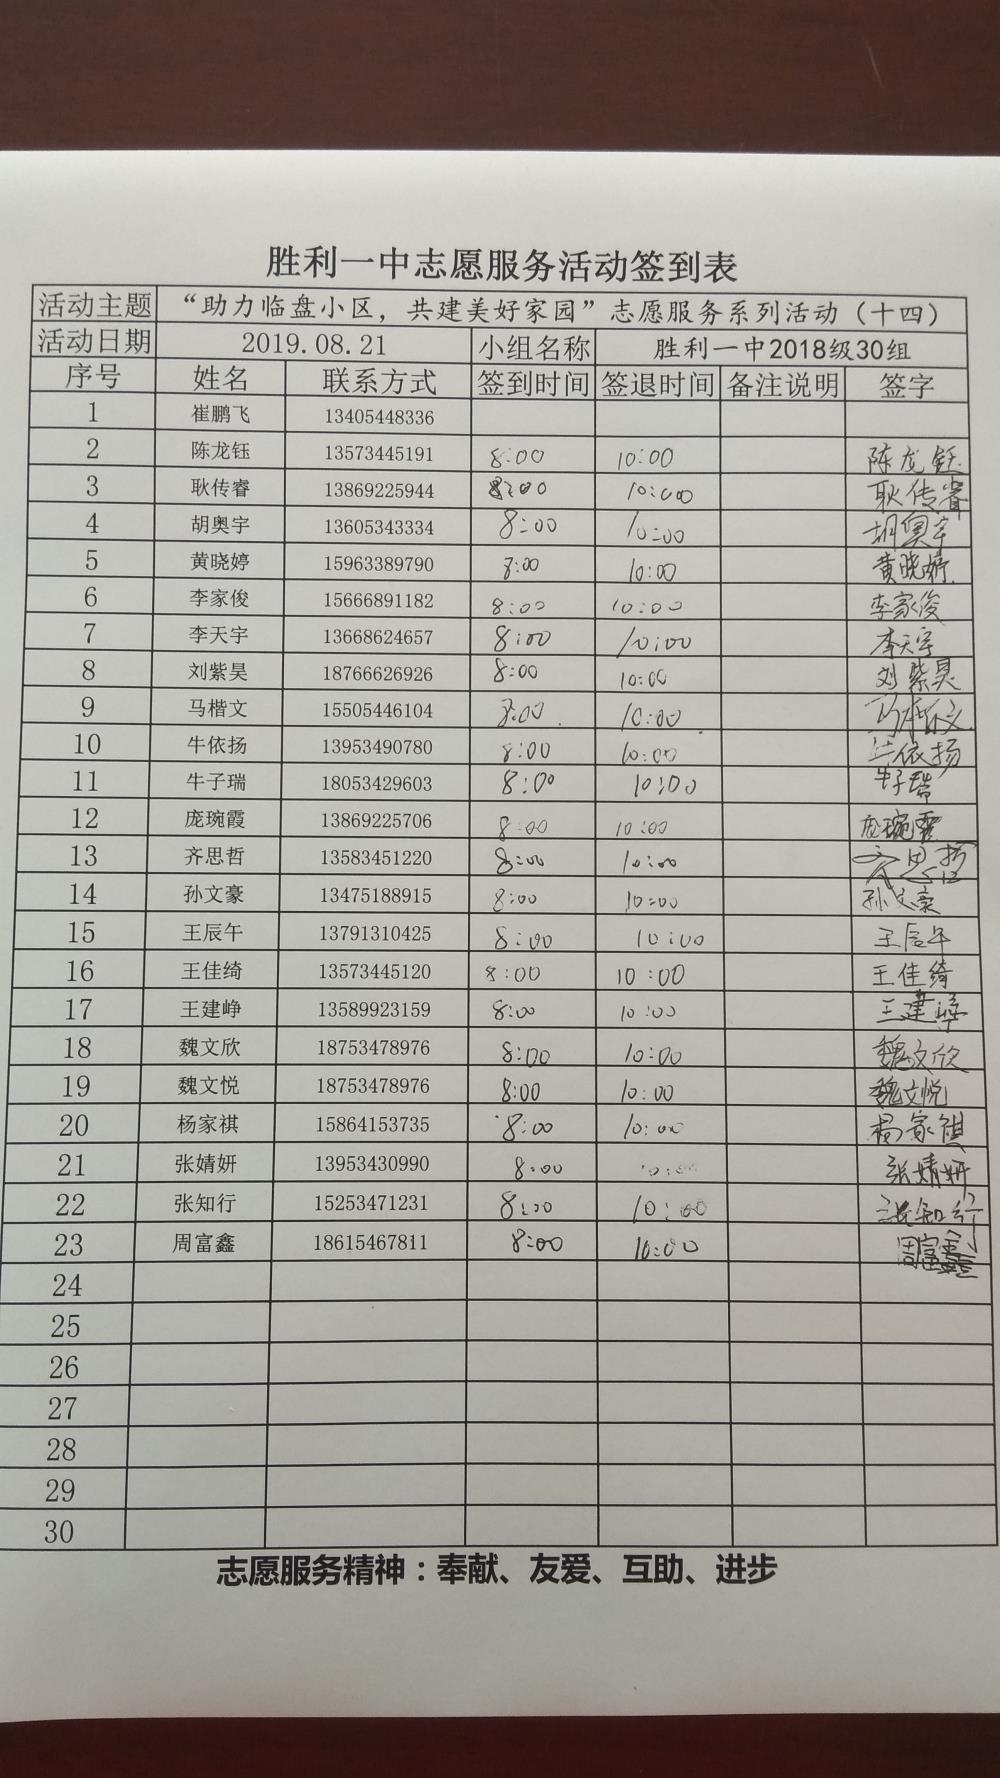 胜利一中志愿服务活动签到表
活动主题 “助力临盘小区，共建美好家园”志愿服务系列活动（十四）
活动日期 2019.08.21 小组名称 胜利一中2018级30组
序号 姓名 联系方式 签到时间 签退时间 备注说明 签字
1 崔鹏飞 13405448336
2 陈龙钰 13573445191 8:00 10:00 陈龙钰
3 耿传睿 13869225944 8:00 10:00 耿传睿
4 胡奥宇 13605343334 8:00 10:00 胡奥宇
5 黄晓婷 15963389790 8:00 10:00 黄晓婷
6 李家俊 15666891182 8:00 10:00 李家俊
7 李天宇 13668624657 8:00 10:00 李天宇
8 刘紫昊 18766626926 8:00 10:00 刘紫昊
9 马楷文 15505446104 8:00 10:00 马楷文
10 牛依扬 13953490780 8:00 10:00 牛依扬
11 牛子瑞 18053429603 8:00 10:00 牛子瑞
12 庞琬霞 13869225706 8:00 10:00 庞琬霞
13 齐思哲 13583451220 8:00 10:00 齐思哲
14 孙文豪 13475188915 8:00 10:00 孙文豪
15 王辰午 13791310425 8:00 10:00 王辰午
16 王佳绮 13573445120 8:00 10:00 王佳绮
17 王建峥 13589923159 8:00 10:00 王建峥
18 魏文欣 18753478976 8:00 10:00 魏文欣
19 魏文悦 18753478976 8:00 10:00 魏文悦
20 杨家祺 15864153735 8:00 10:00 杨家祺
21 张婧妍 13953430990 8:00 10:00 张婧妍
22 张知行 15253471231 8:00 10:00 张知行
23 周富鑫 18615467811 8:00 10:00 周富鑫
24
25
26
27
28
29
30
志愿服务精神：奉献、友爱、互助、进步